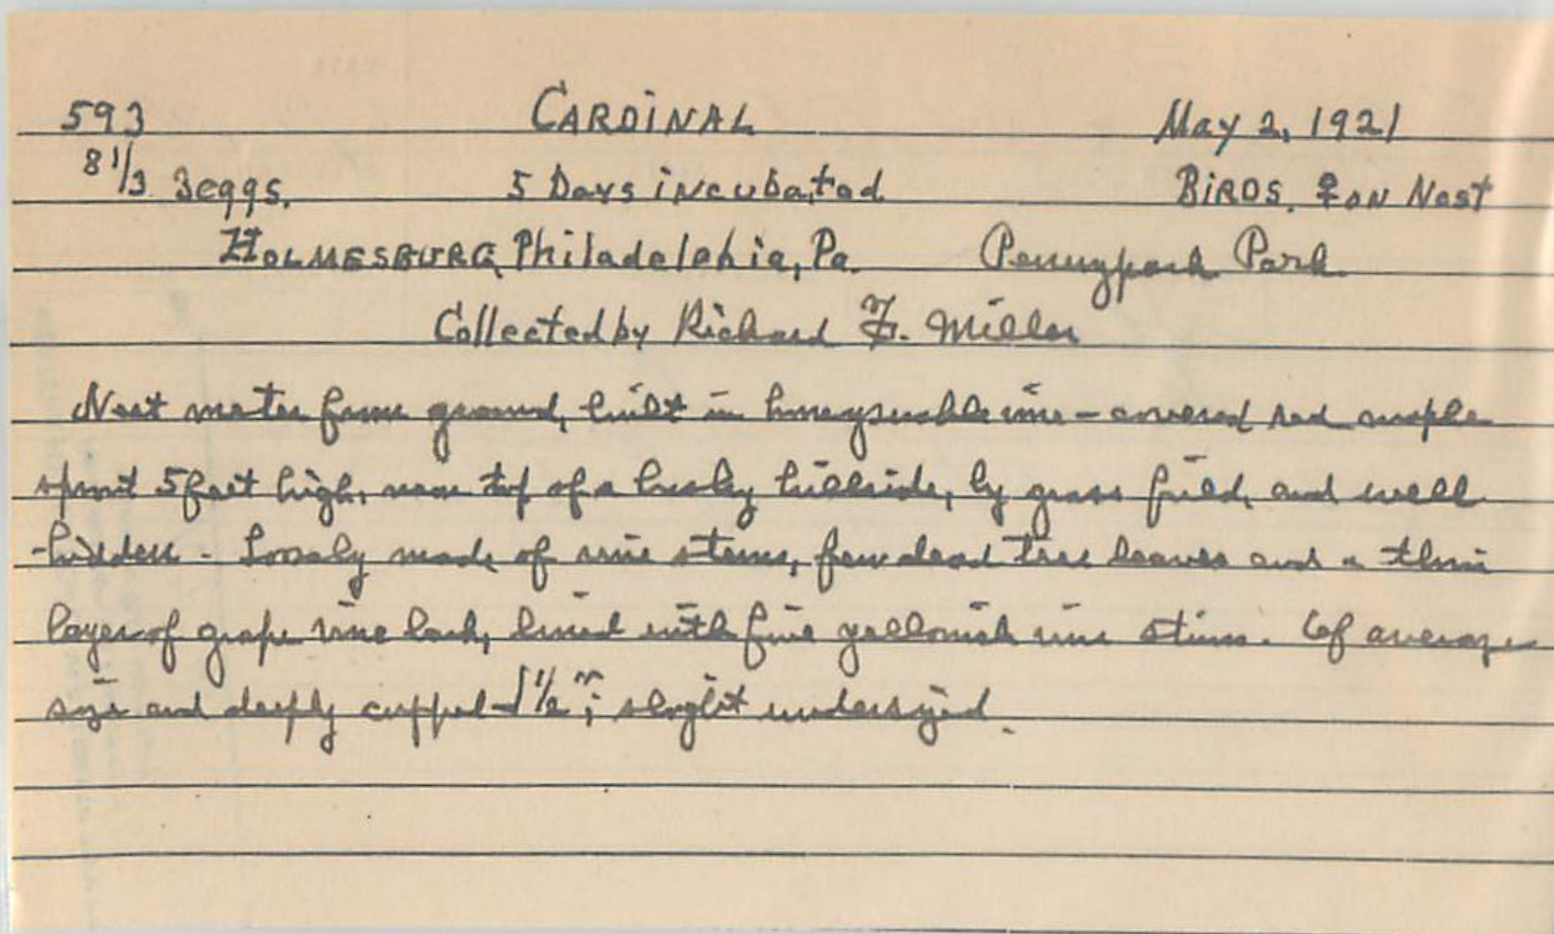 593 CARDINAL May 2, 1921
8 1/3 3 eggs. 5 Days incubated BIRDS. ♀ ON Nest
HOLMESBURG, Philadelphia, Pa. Pennypack Park
Collected by Richard F. Miller
Nest meter from ground, built in honeysuckle vine-covered red maple
sprout 5 feet high, near top of a bushy hillside, by grass field, and well
-hidden - Loosely made of vine stems, few dead tree leaves and a thin
layer of grape vine bark, lined with fine yellowish vine stems. Of average
size and deeply cupped - 1 1/2"; slight undersized.